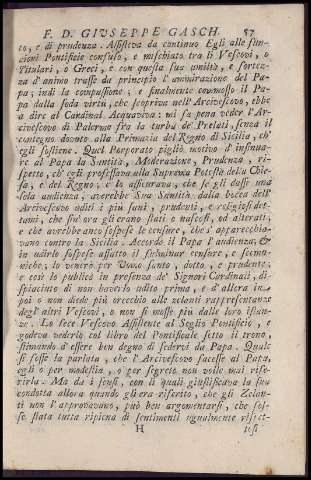 F. D. GIUSEPPE GASCH. 57
to, e di prudenza. Assisteva da continuo Egli alle fun-
zioni Pontificie confuso, e mischiato tra li Vescovi, o
Titulari, o Greci, e con questa sua umiltà, e fortez-
za d'animo trasse da principio l'ammirazione del Pa-
pa; indi la compassione; e finalmente commosso il Pa-
pa dalla soda virtù, che scopriva nell'Arcivescovo, ebbe
a dire al Cardinal Acquaviva: mi fa pena veder l'Ar-
civescovo di Palermo fra la turba de' Prelati, senza il
contegno dovuto alla Primazia del Regno di Sicilia, ch'
egli sostiene. Quel Porporato pigliò motivo d'insinua-
re al Papa la Santità, Moderazione, Prudenza, ris-
petto, ch'egli professava alla Suprema Potestà della Chie-
sa, e del Regno; e lo assicurava, che se gli dasse una
sola audienza, averebbe Sua Santità dalla bocca dell'
Arcivescovo uditi i più sani, prudenti, e religiosi det-
tami, che fin'ora gli erano stati o nascosti, od alterati,
e che averebbe anco sospese le censure, che s'apparecchia-
vano contro la Sicilia. Accordò il Papa l'audienza, &
in udirlo sospese affatto il fulminar censure, e scomu-
niche; lo venerò per Uomo santo, dotto, e prudente;
e così lo publicò in presenza de' Signori Cardinali, di-
spiacinto di non haverlo udito prima, e d'allora in-
poi o non diede più orecchio alle zelanti rappresentanze
degl'altri Vescovi, o non si mosse più dalle loro istan-
ze. Lo fece Vescovo Assistente al Soglio Pontificio, e
godeva vederlo col libro del Pontificale sotto il trono,
stimando d'essere ben degno di sedervi da Papa. Quale
si fosse la parlata, che l'Arcivescovo facesse al Papa,
egli o per modestia, o per segreto non volle mai rife-
rirla. Ma da i sensi, con li quali giustificava la sua
condotta allora quando gli era riferito, che gli Zelan-
ti non l'approvavano, può ben argomentarsi, che fos-
se stata tutta ripiena di sentimenti ugualmente rispet-
H tosi